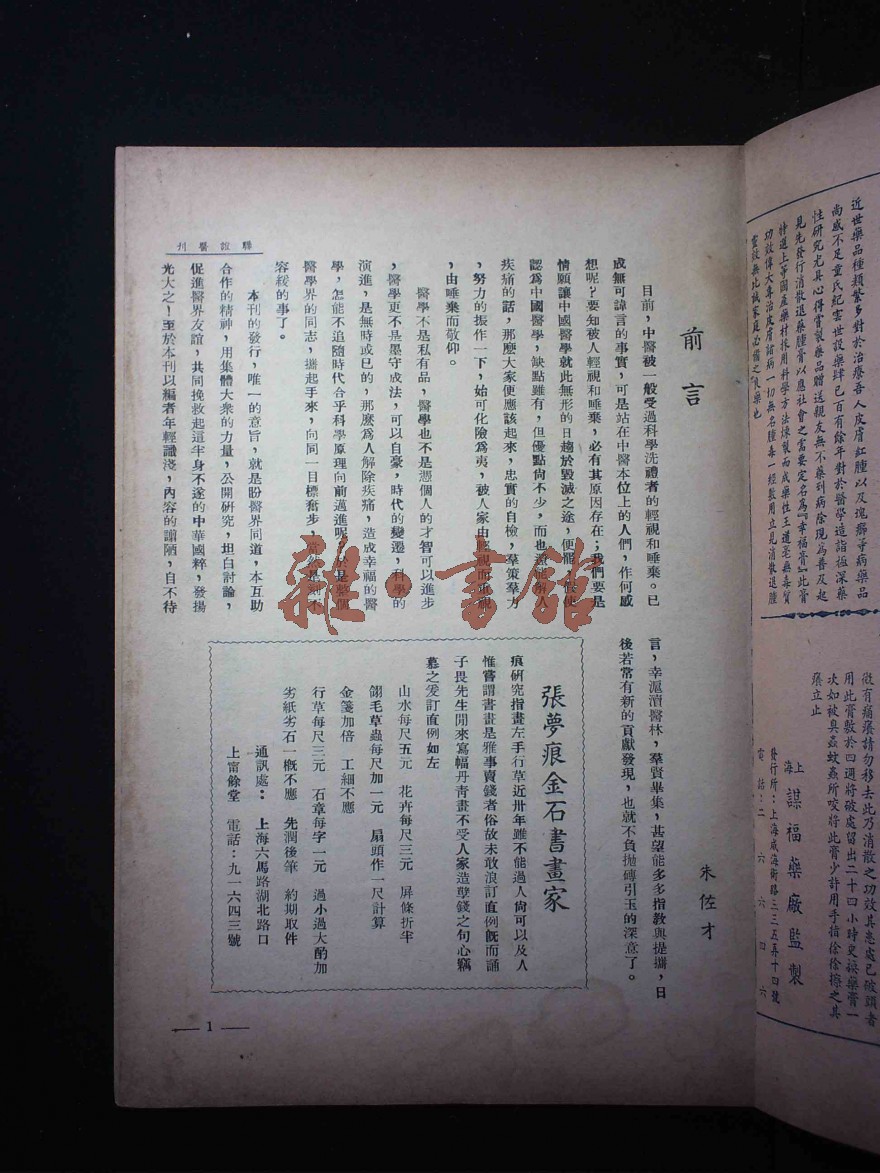 近世藥品種類繁多對於治療吾人皮膚紅腫以及瑰癤等病藥品
尚感不足童氏紀害世設藥肆已百有餘年對於醫學造詣極深藥
性研究尤具心得嘗製藥品贈送親友無不藥到病除現為普及起
見先發行消散退藥腫膏以應社會之需要定名為『幸福膏』此膏
特選上等國產藥材採用科學方法煉製而成藥性王道毫無毒質
功效偉大專治皮膚諸病一切無名腫毒一經敷用立見消散退腫
靈效無比誠家庭必備之良藥也
微有痛癢請勿移去此乃消散之功效其患處已破頭者
用此膏敷於四週將破處留出二十四小時更換藥膏一
次如被臭蟲蚊蝨所咬將此膏少許用手指徐徐擦之其
癢立止
上海 謀福藥廠監製
發行所：上海威海衛路三三五弄十四號
電話：二六六四六
前言
朱佐才
目前，中醫被一般受過科學洗禮者的輕視和唾棄。已
成無可諱言的事實，可是站在中醫本位上的人們，作何感
想呢？要知被人輕視和唾棄，必有其原因存在；我們要是
情願讓中國醫學就此無形的日趨於毀滅之途，便罷，假使
認為中國醫學，缺點雖有，但優點尚不少，而也還能解人
疾痛的話，那麼大家便應該起來，忠實的自檢，羣策羣力
，努力的振作一下，始可化險為夷，被人家由輕視而重視
，由唾棄而敬仰。
醫學不是私有品，醫學也不是憑個人的才智可以進步
，醫學更不是墨守成法，可以自豪，時代的變遷，科學的
演進，是無時或已的，那麼為人解除疾痛，造成幸福的醫
學，怎能不追隨時代合乎科學原理向前邁進呢，於是整個
醫學界的同志，攜起手來，向同一目標奮步，當然是刻不
容緩的事了。
本刊的發行，唯一的意旨，就是盼醫界同道，本互助
合作的精神，用集體大衆的力量，公開研究，坦白討論，
促進醫界友誼，共同挽救起這半身不遂的中華國粹，發揚
光大之！至於本刊以編者年輕識淺，內容的譾陋，自不待
言，幸滬濱醫林，羣賢畢集，甚望能多多指教與提攜，日
後若常有新的貢獻發現，也就不負拋磚引玉的深意了。
張夢痕金石書畫家
痕研究指畫左手行草近卅年雖不能過人尚可以及人
惟嘗謂書畫是雅事賣錢者俗故未敢浪訂直例旣而誦
子畏先生閒來寫幅丹青畫不受人家造孽錢之句心竊
慕之爰訂直例如左
山水每尺五元 花卉每尺三元 屏條折半
翎毛草蟲每尺加一元 扇頭作一尺計算
金箋加倍 工細不應
行草每尺三元 石章每字一元 過小過大酌加
劣紙劣石一概不應 先潤後筆 約期取件
通訊處： 上海六馬路湖北路口
上甯餘堂 電話：九一六四三號
聯誼醫刊
— 1 —
雜·書館